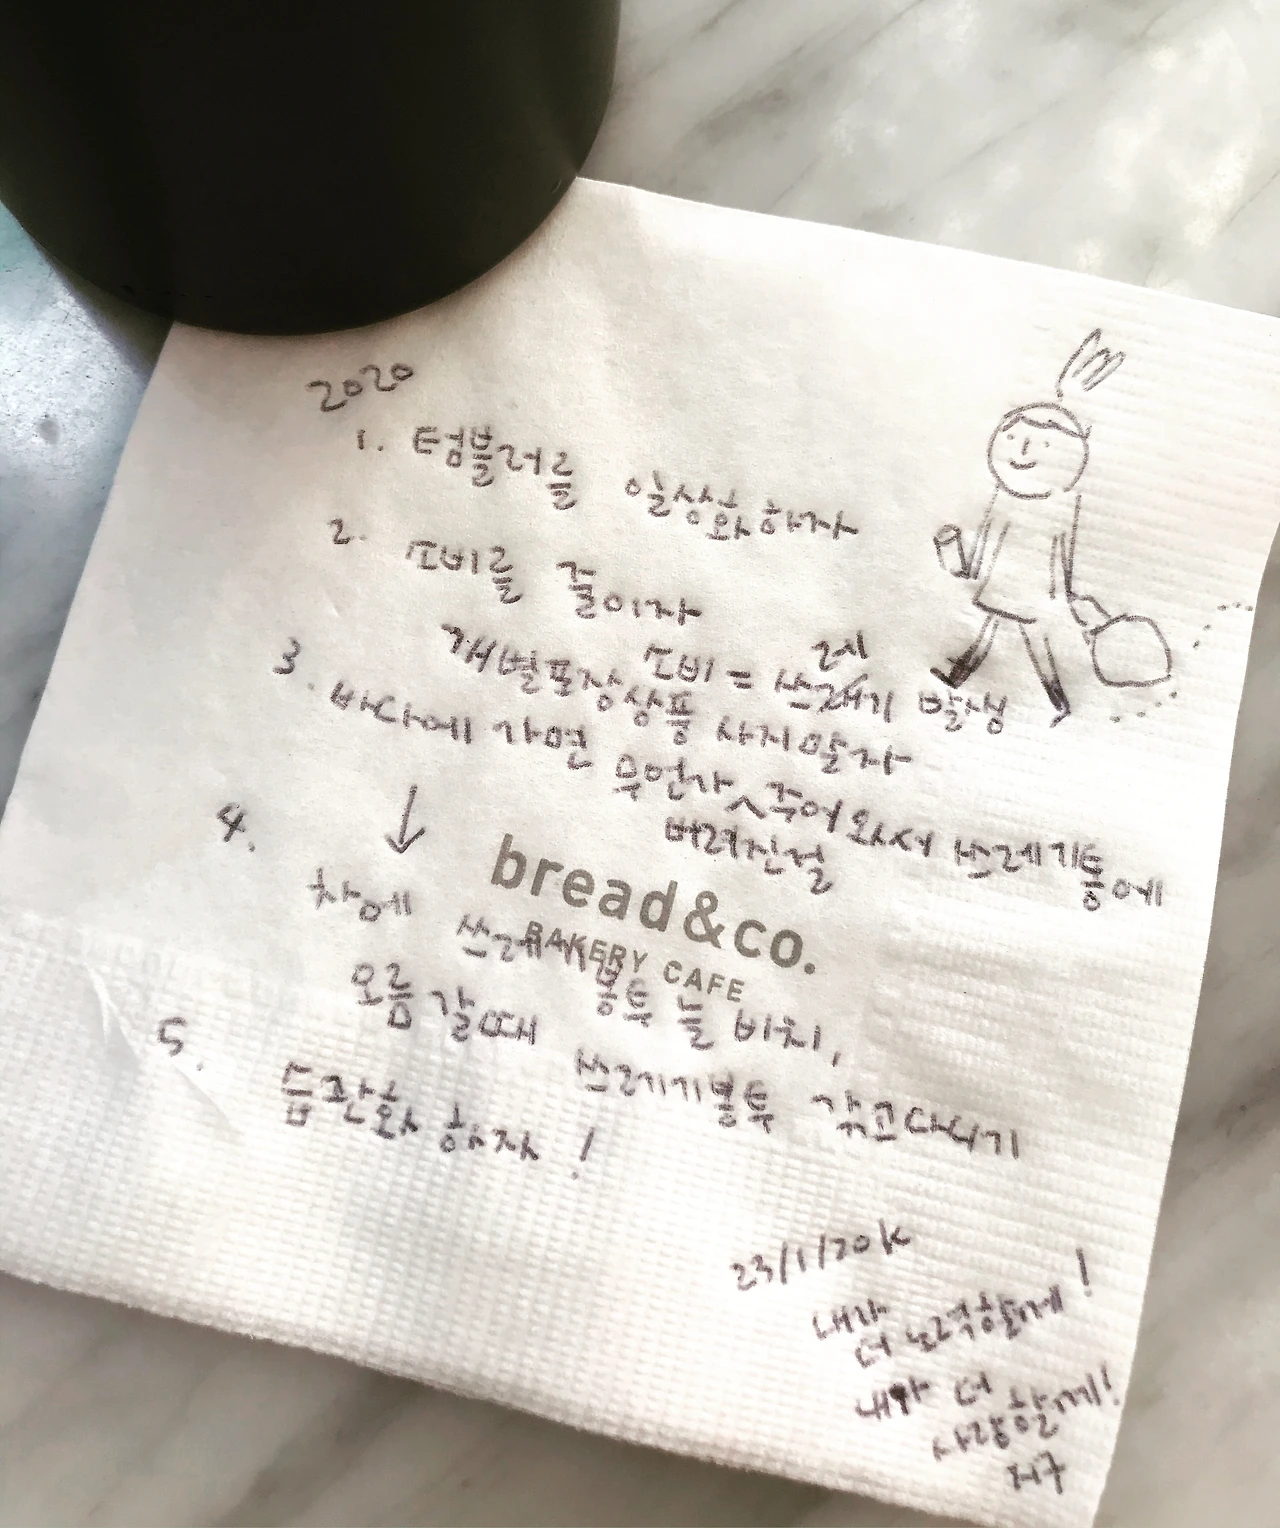 2020
1. 텀블러를 일상화하자
2. 쏘비를 줄이자
쏘비 = 쓰레기 발생
개별포장상품 사지말자
3. 바다에 가면 무언가 주어와서 쓰레기통에
버려진걸
4. ↓
차에 쓰레기봉투 늘 비치,
bread&co.
BAKERY CAFE
오름 갈때 쓰레기봉투 갖고다니기
5. 습관화 하자!
23/1/20 K
내가
더 노력할께!
내가 더
사랑할께!
지구